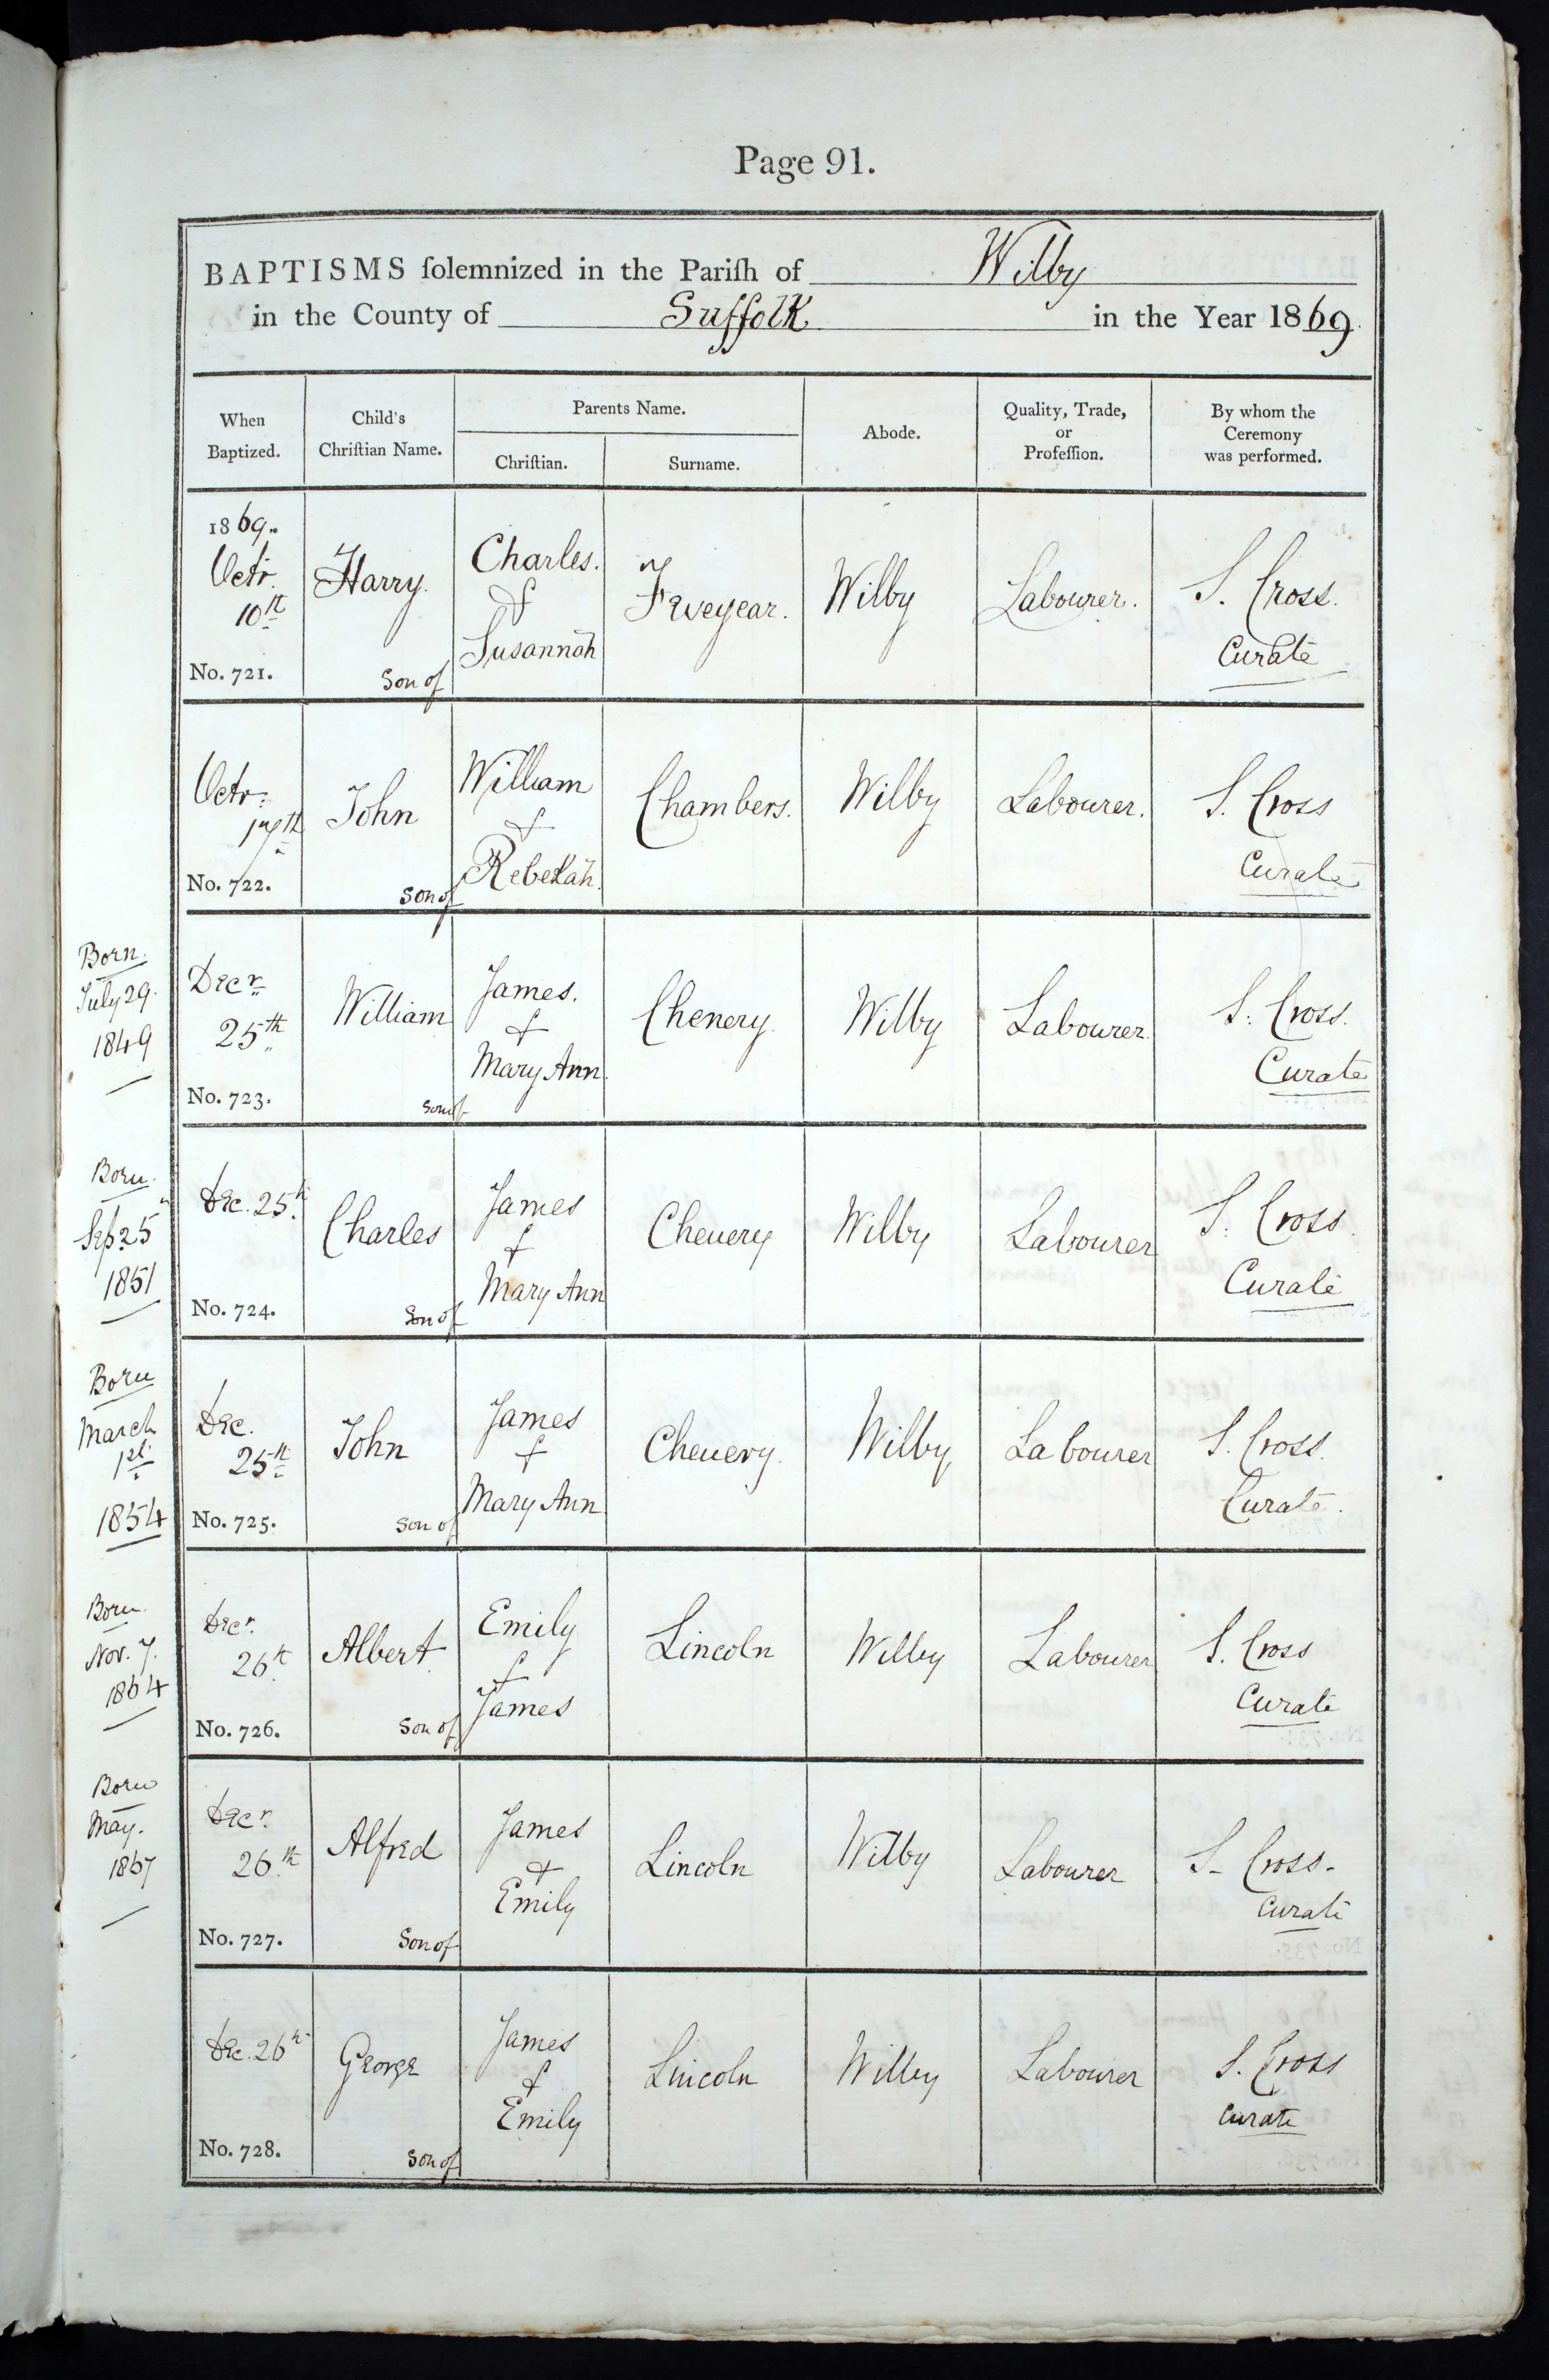 Page 91.
BAPTISMS ſolemnized in the Pariſh of Wilby
in the County of Suffolk in the Year 1869.
When Baptized.
Child's Chriſtian Name.
Parents Name.
Chriſtian.
Surname.
Abode.
Quality, Trade, or Profeſſion.
By whom the Ceremony was performed.
1869.
Octr. 10th
No. 721.
Harry.
Son of
Charles. & Susannah
Wilby
Labourer.
S. Cross. Curate
Octr: 17th
No. 722.
John
Son of
William & Rebekah.
Chambers.
Wilby
Labourer.
S. Cross Curate
Born. July 29. 1849
Decr 25th
No. 723.
William
Son of
James. & Mary Ann.
Chenery.
Wilby
Labourer.
S: Cross. Curate
Born. Sep. 25 1851
Dec. 25th
No. 724.
Charles
Son of
James & Mary Ann
Chenery
Wilby
Labourer
S: Cross. Curate
Born March 1st 1854
Dec. 25th
No. 725.
John
Son of
James & Mary Ann
Chenery.
Wilby
Labourer
S. Cross. Curate.
Born. Nov. 7. 1864
Decr. 26th
No. 726.
Albert
Son of
Emily & James
Lincoln
Wilby
Labourer
S. Cross Curate
Born May. 1867
Decr. 26th
No. 727.
Alfred
Son of
James & Emily
Lincoln
Wilby
Labourer
S. Cross. Curate
Dec. 26th
No. 728.
George
Son of
James & Emily
Lincoln
Wilby
Labourer
S. Cross Curate